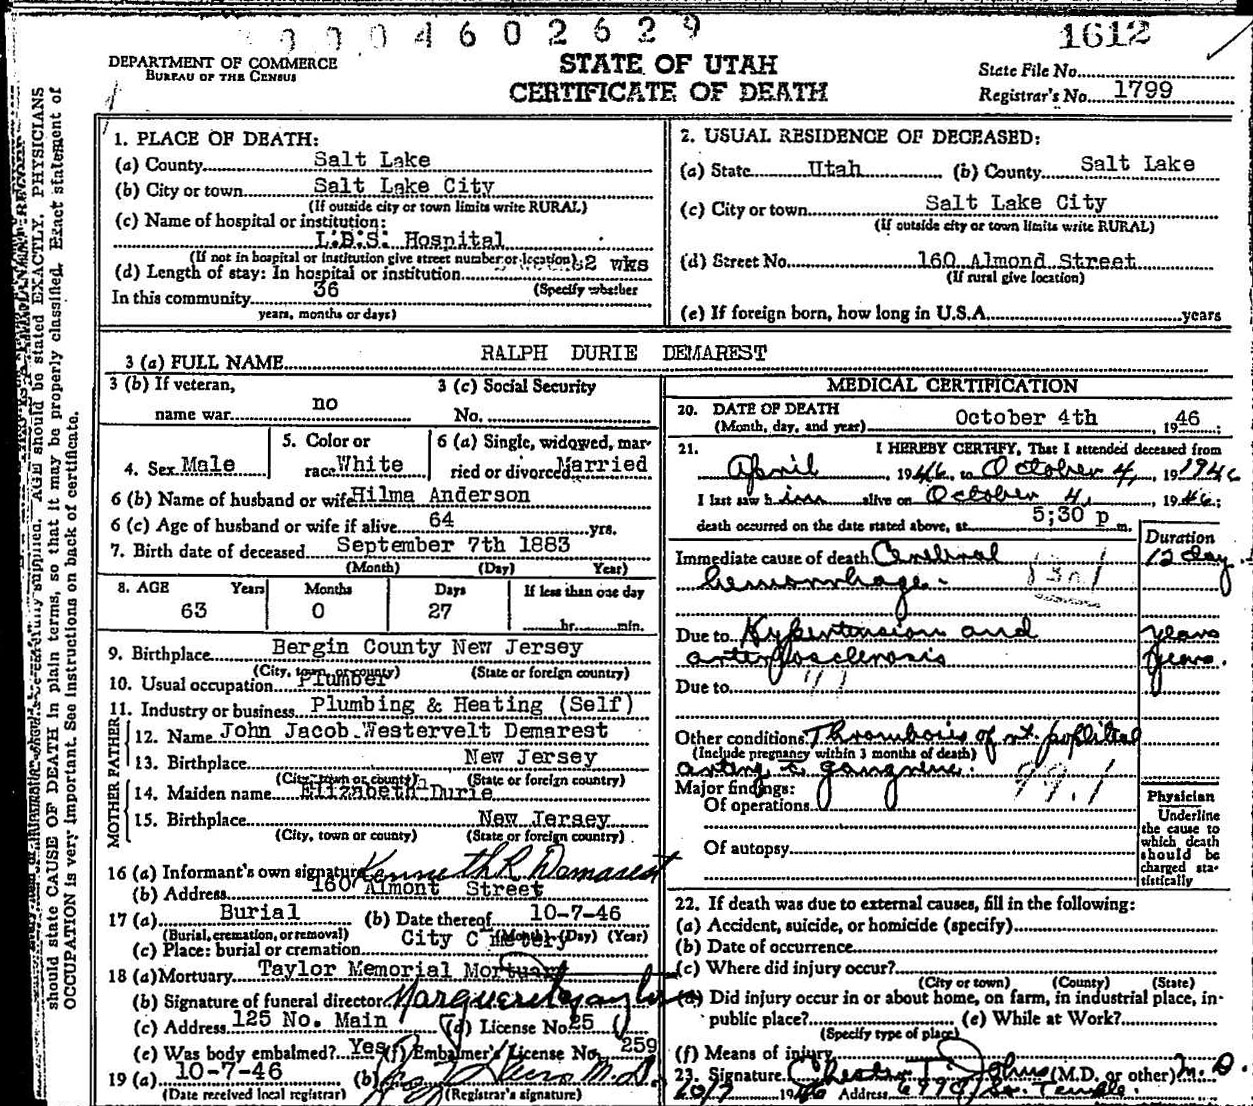 0004602629
1612
DEPARTMENT OF COMMERCE
BUREAU OF THE CENSUS
STATE OF UTAH
CERTIFICATE OF DEATH
State File No.
Registrar's No. 1799
should state CAUSE OF DEATH in plain terms, so that it may be properly classified. Exact statement of
OCCUPATION is very important. See instructions on back of certificate.
1. PLACE OF DEATH:
(a) County Salt Lake
(b) City or town Salt Lake City
(If outside city or town limits write RURAL)
(c) Name of hospital or institution:
L.D.S. Hospital
(If not in hospital or institution give street number or location)
(d) Length of stay: In hospital or institution 2 wks
(Specify whether
In this community 36
years, months or days)
2. USUAL RESIDENCE OF DECEASED:
(a) State Utah (b) County Salt Lake
(c) City or town Salt Lake City
(If outside city or town limits write RURAL)
(d) Street No. 160 Almond Street
(If rural give location)
(e) If foreign born, how long in U.S.A. years
3 (a) FULL NAME RALPH DURIE DEMAREST
3 (b) If veteran,
name war no
3 (c) Social Security
No.
4. Sex Male
5. Color or
race White
6 (a) Single, widowed, mar-
ried or divorced Married
6 (b) Name of husband or wife Hilma Anderson
6 (c) Age of husband or wife if alive 64 yrs.
7. Birth date of deceased September 7th 1883
(Month) (Day) Year)
8. AGE Years Months Days If less than one day
63 0 27 hr. min.
9. Birthplace Bergin County New Jersey
(City, town or county) (State or foreign country)
10. Usual occupation Plumber
11. Industry or business Plumbing & Heating (Self)
MOTHER FATHER
12. Name John Jacob Westervelt Demarest
13. Birthplace New Jersey
(City, town or county) (State or foreign country)
14. Maiden name Elizabeth Durie
15. Birthplace New Jersey
(City, town or county) (State or foreign country)
16 (a) Informant's own signature Kenneth R Demarest
(b) Address 160 Almont Street
17 (a) Burial (b) Date thereof 10-7-46
(Burial, cremation, or removal) (Month) (Day) (Year)
(c) Place: burial or cremation City C metery
18 (a) Mortuary Taylor Memorial Mortuary
(b) Signature of funeral director Marguerite Taylor
(c) Address 125 No. Main (d) License No. 25
(e) Was body embalmed? Yes (f) Embalmer's License No. 259
19 (a) 10-7-46 (b) M.D.
(Date received local registrar) (Registrar's signature)
MEDICAL CERTIFICATION
20. DATE OF DEATH
(Month, day, and year) October 4th 1946;
21. I HEREBY CERTIFY, That I attended deceased from
April, 1946, to October 4, 1946
I last saw him alive on October 4, 1946;
death occurred on the date stated above, at 5;30 p m.
Duration
Immediate cause of death Cerebral 12 days
hemorrhage.
Due to Hypertension and years
arteriosclerosis years.
Due to
Other conditions Thrombosis of rt. popliteal
(Include pregnancy within 3 months of death)
artery c gangrene.
99.1
Major findings:
Of operations
Of autopsy
Physician
Underline
the cause to
which death
should be
charged sta-
tistically
22. If death was due to external causes, fill in the following:
(a) Accident, suicide, or homicide (specify)
(b) Date of occurrence
(c) Where did injury occur?
(City or town) (County) (State)
(d) Did injury occur in or about home, on farm, in industrial place, in-
public place? (e) While at Work?
(Specify type of place)
(f) Means of injury
23. Signature Chester T. (M.D. or other) M.D.
10/7 1946 Address So. Temple.